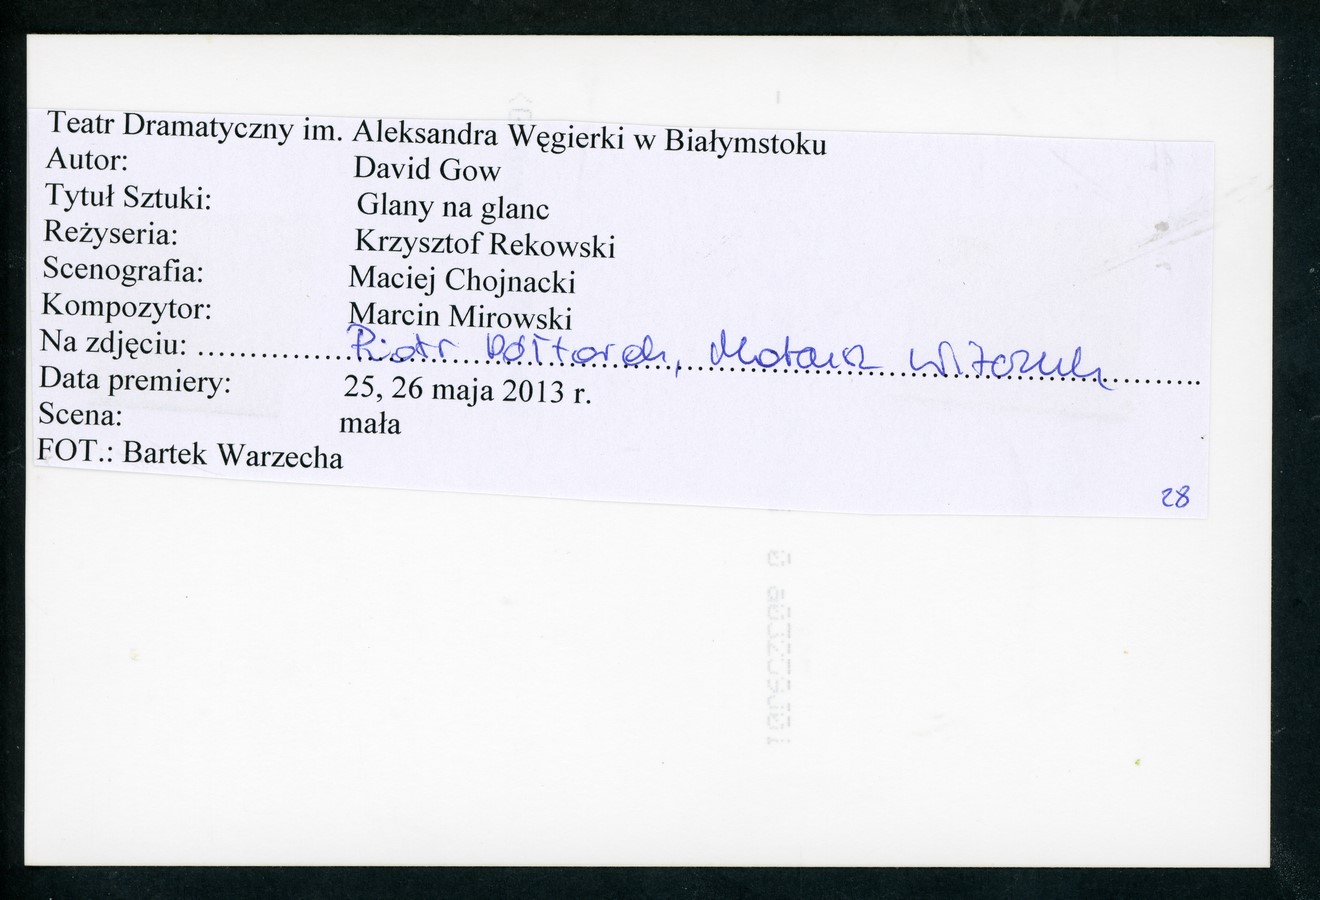 Teatr Dramatyczny im. Aleksandra Węgierki w Białymstoku
Autor: David Gow
Tytuł Sztuki: Glany na glanc
Reżyseria: Krzysztof Rekowski
Scenografia: Maciej Chojnacki
Kompozytor: Marcin Mirowski
Na zdjęciu: Piotr Półtorak,
Data premiery: 25, 26 maja 2013 r.
Scena: mała
FOT.: Bartek Warzecha
28